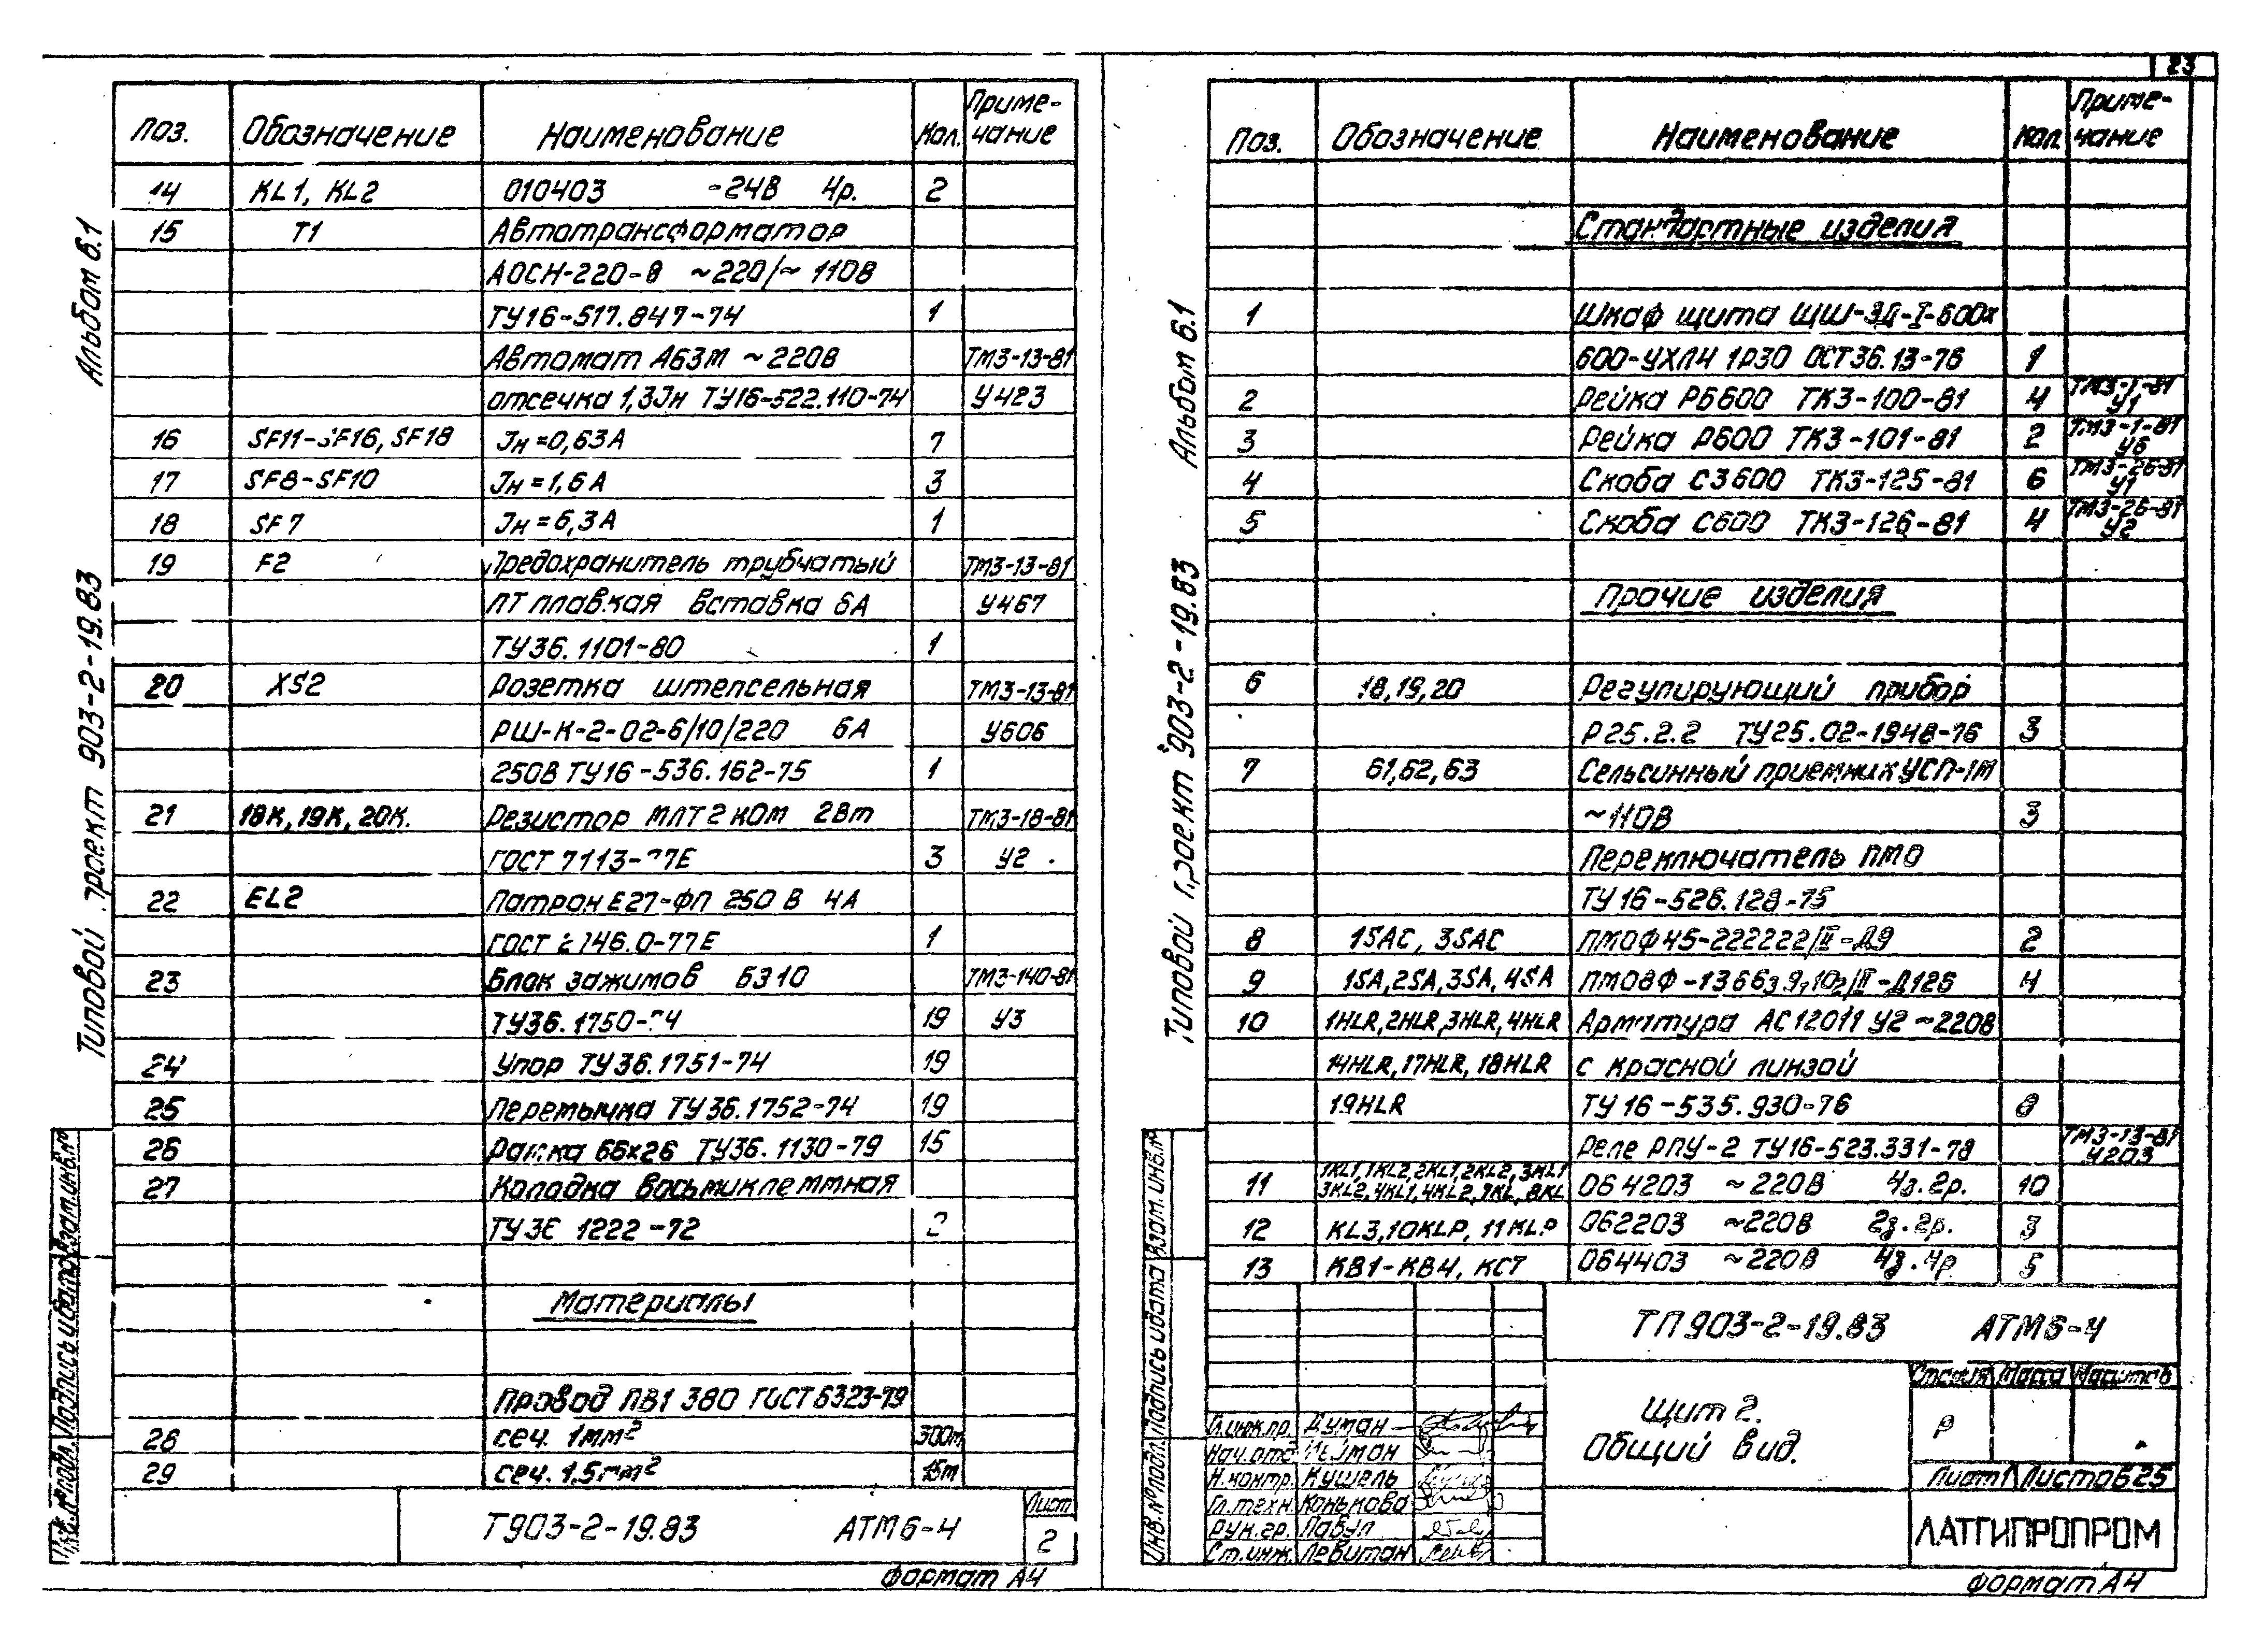 23
Альбом 6.1
Типовой проект 903-2-19.83
Поз. Обозначение Наименование Кол. Приме-
чание
14 KL1, KL2 010403 -24В 4р. 2
15 Т1 Автотрансформатор
АОСН-220-8 ~220/~110В
ТУ16-517.847-74 1
Автомат А63М ~220В ТМ3-13-81
отсечка 1,3Jн ТУ16-522.110-74 У423
16 SF11-SF16, SF18 Jн=0,63А 7
17 SF8-SF10 Jн=1,6А 3
18 SF7 Jн=6,3А 1
19 F2 Предохранитель трубчатый ТМ3-13-81
ПТ плавкая вставка 6А У467
ТУ36.1101-80 1
20 XS2 Розетка штепсельная ТМ3-13-81
РШ-К-2-02-6/10/220 6А У606
250В ТУ16-536.162-75 1
21 18К, 19К, 20К. Резистор МЛТ 2 кОм 2Вт ТМ3-18-81
ГОСТ 7113-77Е 3 У2
22 EL2 Патрон Е27-ФП 250 В 4А
ГОСТ 2746.0-77Е 1
23 Блок зажимов БЗ 10 ТМ3-140-81
ТУ36.1750-74 19 У3
24 Упор ТУ36.1751-74 19
25 Перемычка ТУ36.1752-74 19
26 Рамка 66х26 ТУ36.1130-79 15
27 Колодка восьмиклеммная
ТУ36 1222-72 2
Материалы
Провод ПВ1 380 ГОСТ 6323-79
28 сеч. 1мм² 300м
29 сеч. 1,5мм² 15м
Т903-2-19.83 АТМ6-4
Лист
2
Формат А4
Подпись и дата Взам. инв. №
Альбом 6.1
Типовой проект 903-2-19.83
Поз. Обозначение Наименование Кол. Приме-
чание
Стандартные изделия
1 Шкаф щита ЩШ-ЗД-I-600х
600-УХЛ4 1Р30 ОСТ36.13-76 1
2 Рейка РБ600 ТК3-100-81 4 ТМ3-1-81
У1
3 Рейка Р600 ТК3-101-81 2 ТМ3-1-81
У6
4 Скоба С3600 ТК3-125-81 6 ТМ3-26-81
У1
5 Скоба С600 ТК3-126-81 4 ТМ3-26-81
У2
Прочие изделия
6 18,19,20 Регулирующий прибор
Р25.2.2 ТУ25.02-1948-76 3
7 61,62,63 Сельсинный приемник УСП-1М
~110В 3
Переключатель ПМО
ТУ16-526.128-75
8 1SAC, 3SAC ПМОФ45-222222/II-Д9 2
9 1SA,2SA,3SA,4SA ПМОВФ-1366 II-Д126 4
10 1HLR,2HLR,3HLR,4HLR Арматура АС12011 У2 ~220В
14HLR,17HLR,18HLR с красной линзой
19HLR ТУ16-535.930-76 8
Реле РПУ-2 ТУ16-523.331-78 ТМ3-13-81
У203
1KL1,1KL2,2KL1,2KL2,3KL1
11 3KL2,4KL1,4KL2,7KL,8KL 064203 ~220В 4з.2р. 10
12 KL3,10KLP,11KLP 062203 ~220В 2з.2р. 3
13 КВ1-КВ4, КСТ 064403 ~220В 4з.4р 5
ТП903-2-19.83 АТМ6-4
Щит 2.
Общий вид.
Стадия Масса Масштаб
Р
Лист 1 Листов 25
ЛАТГИПРОПРОМ
Гл.инж.пр. Думан
Нач.отд
Н.контр. Кушель
Гл.техн. Конькова
Рук.гр. Павул
Ст.инж. Левитан
Инв. № подл. Подпись и дата Взам. инв. №
Формат А4